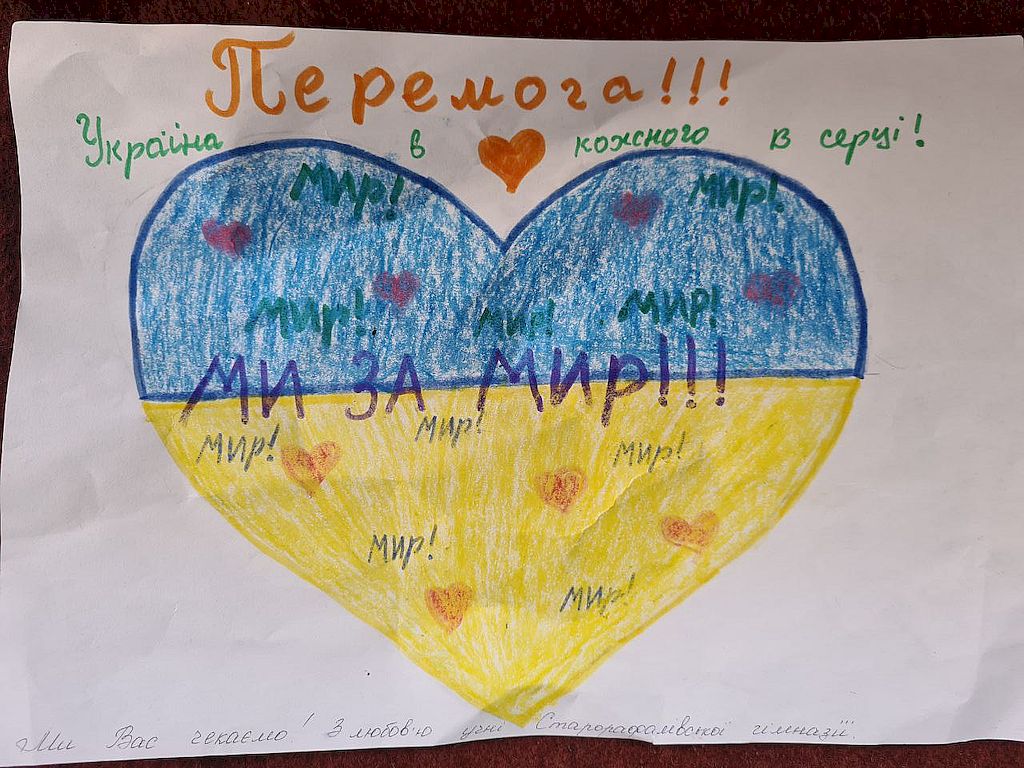 Перемога!!!
Україна в кожного в серці!
Мир! Мир!
Мир! Мир! Мир!
МИ ЗА МИР!!!
Мир! Мир! Мир!
Мир!
Мир!
Ми Вас чекаємо! З любов'ю учні Старорафалівської гімназії.